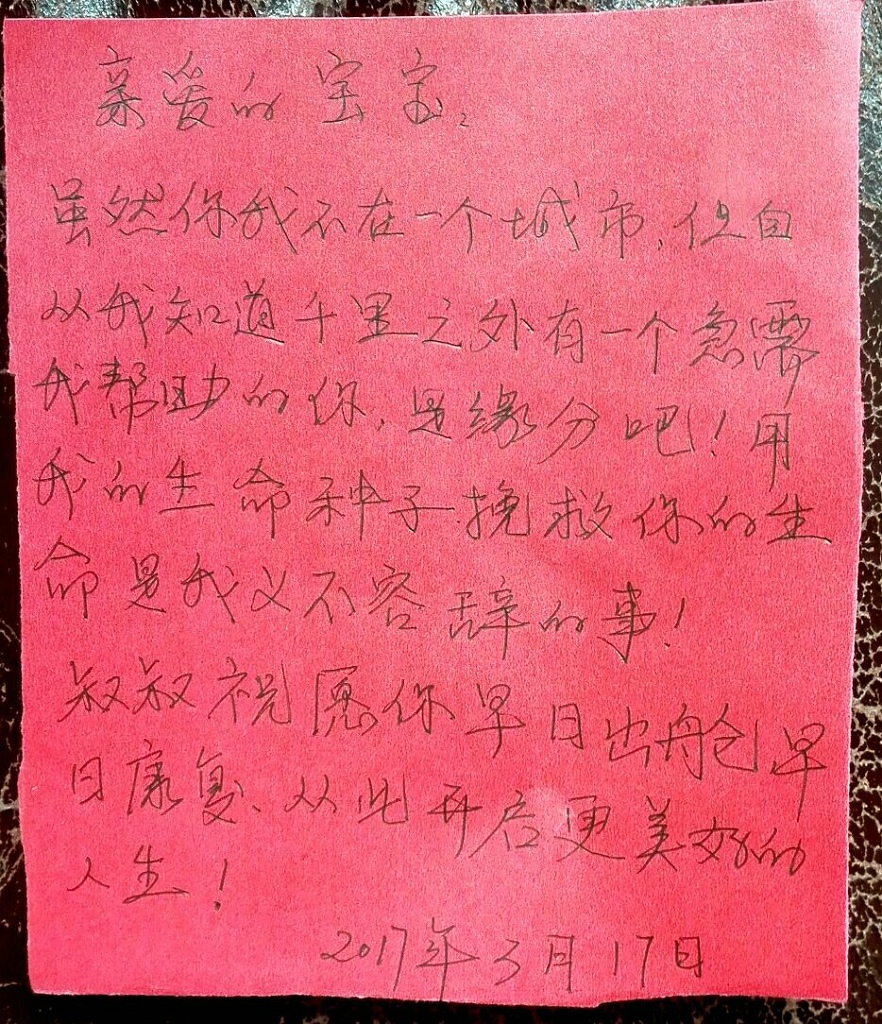 亲爱的宝宝,
虽然你我不在一个城市,但自
从我知道千里之外有一个急需
我帮助的你,是缘分吧!用
我的生命种子挽救你的生
命是我义不容辞的事!
叔叔祝愿你早日出舱早
日康复、从此开启更美好的
人生!
2017年3月17日